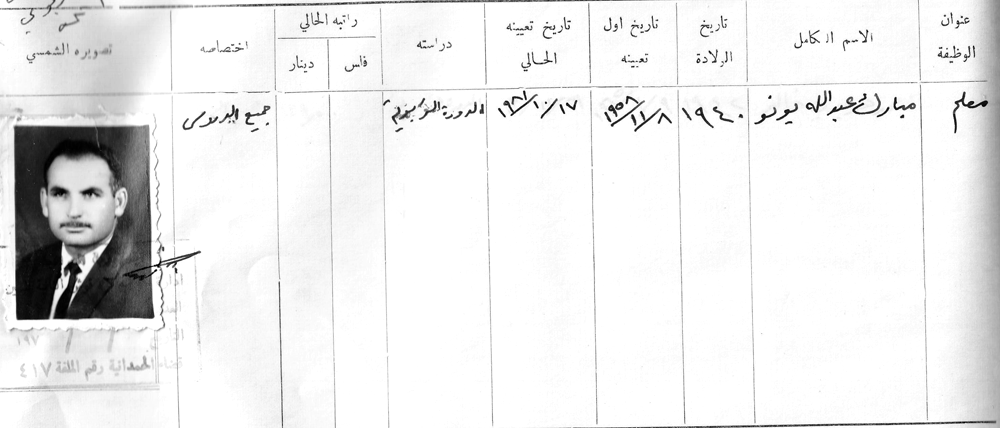 عنوان الوظيفة
الاسم الكامل
تاريخ الولادة
تاريخ اول تعيينه
تاريخ تعيينه الحالي
دراسته
راتبه الحالي
فلس
دينار
اختصاصه
تصويره الشمسي
معلم
مبارك عبدالله يونو
١٩٤٠
١٩٥٨/١١/٨
١٩٨١/١٠/١٧
الدورة التربوية
جميع الدروس
١٩٧
قضاء الحمدانية رقم الملفة ٤١٧